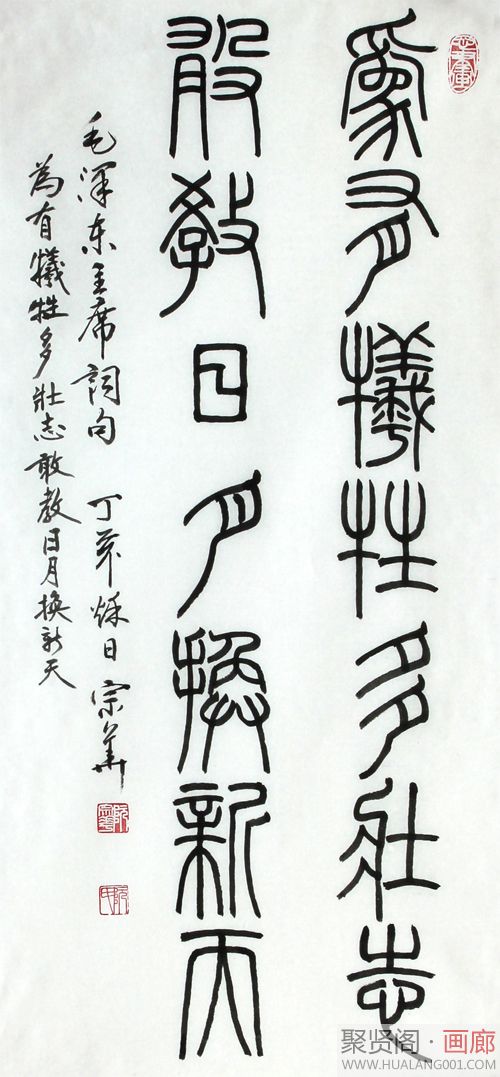 為有犧牲多壯志
敢教日月換新天
毛澤东主席詞句 丁亥秌日 宗華
為有犧牲多壯志敢教日月換新天
聚贤阁·画廊
WWW.HUALANG001.COM